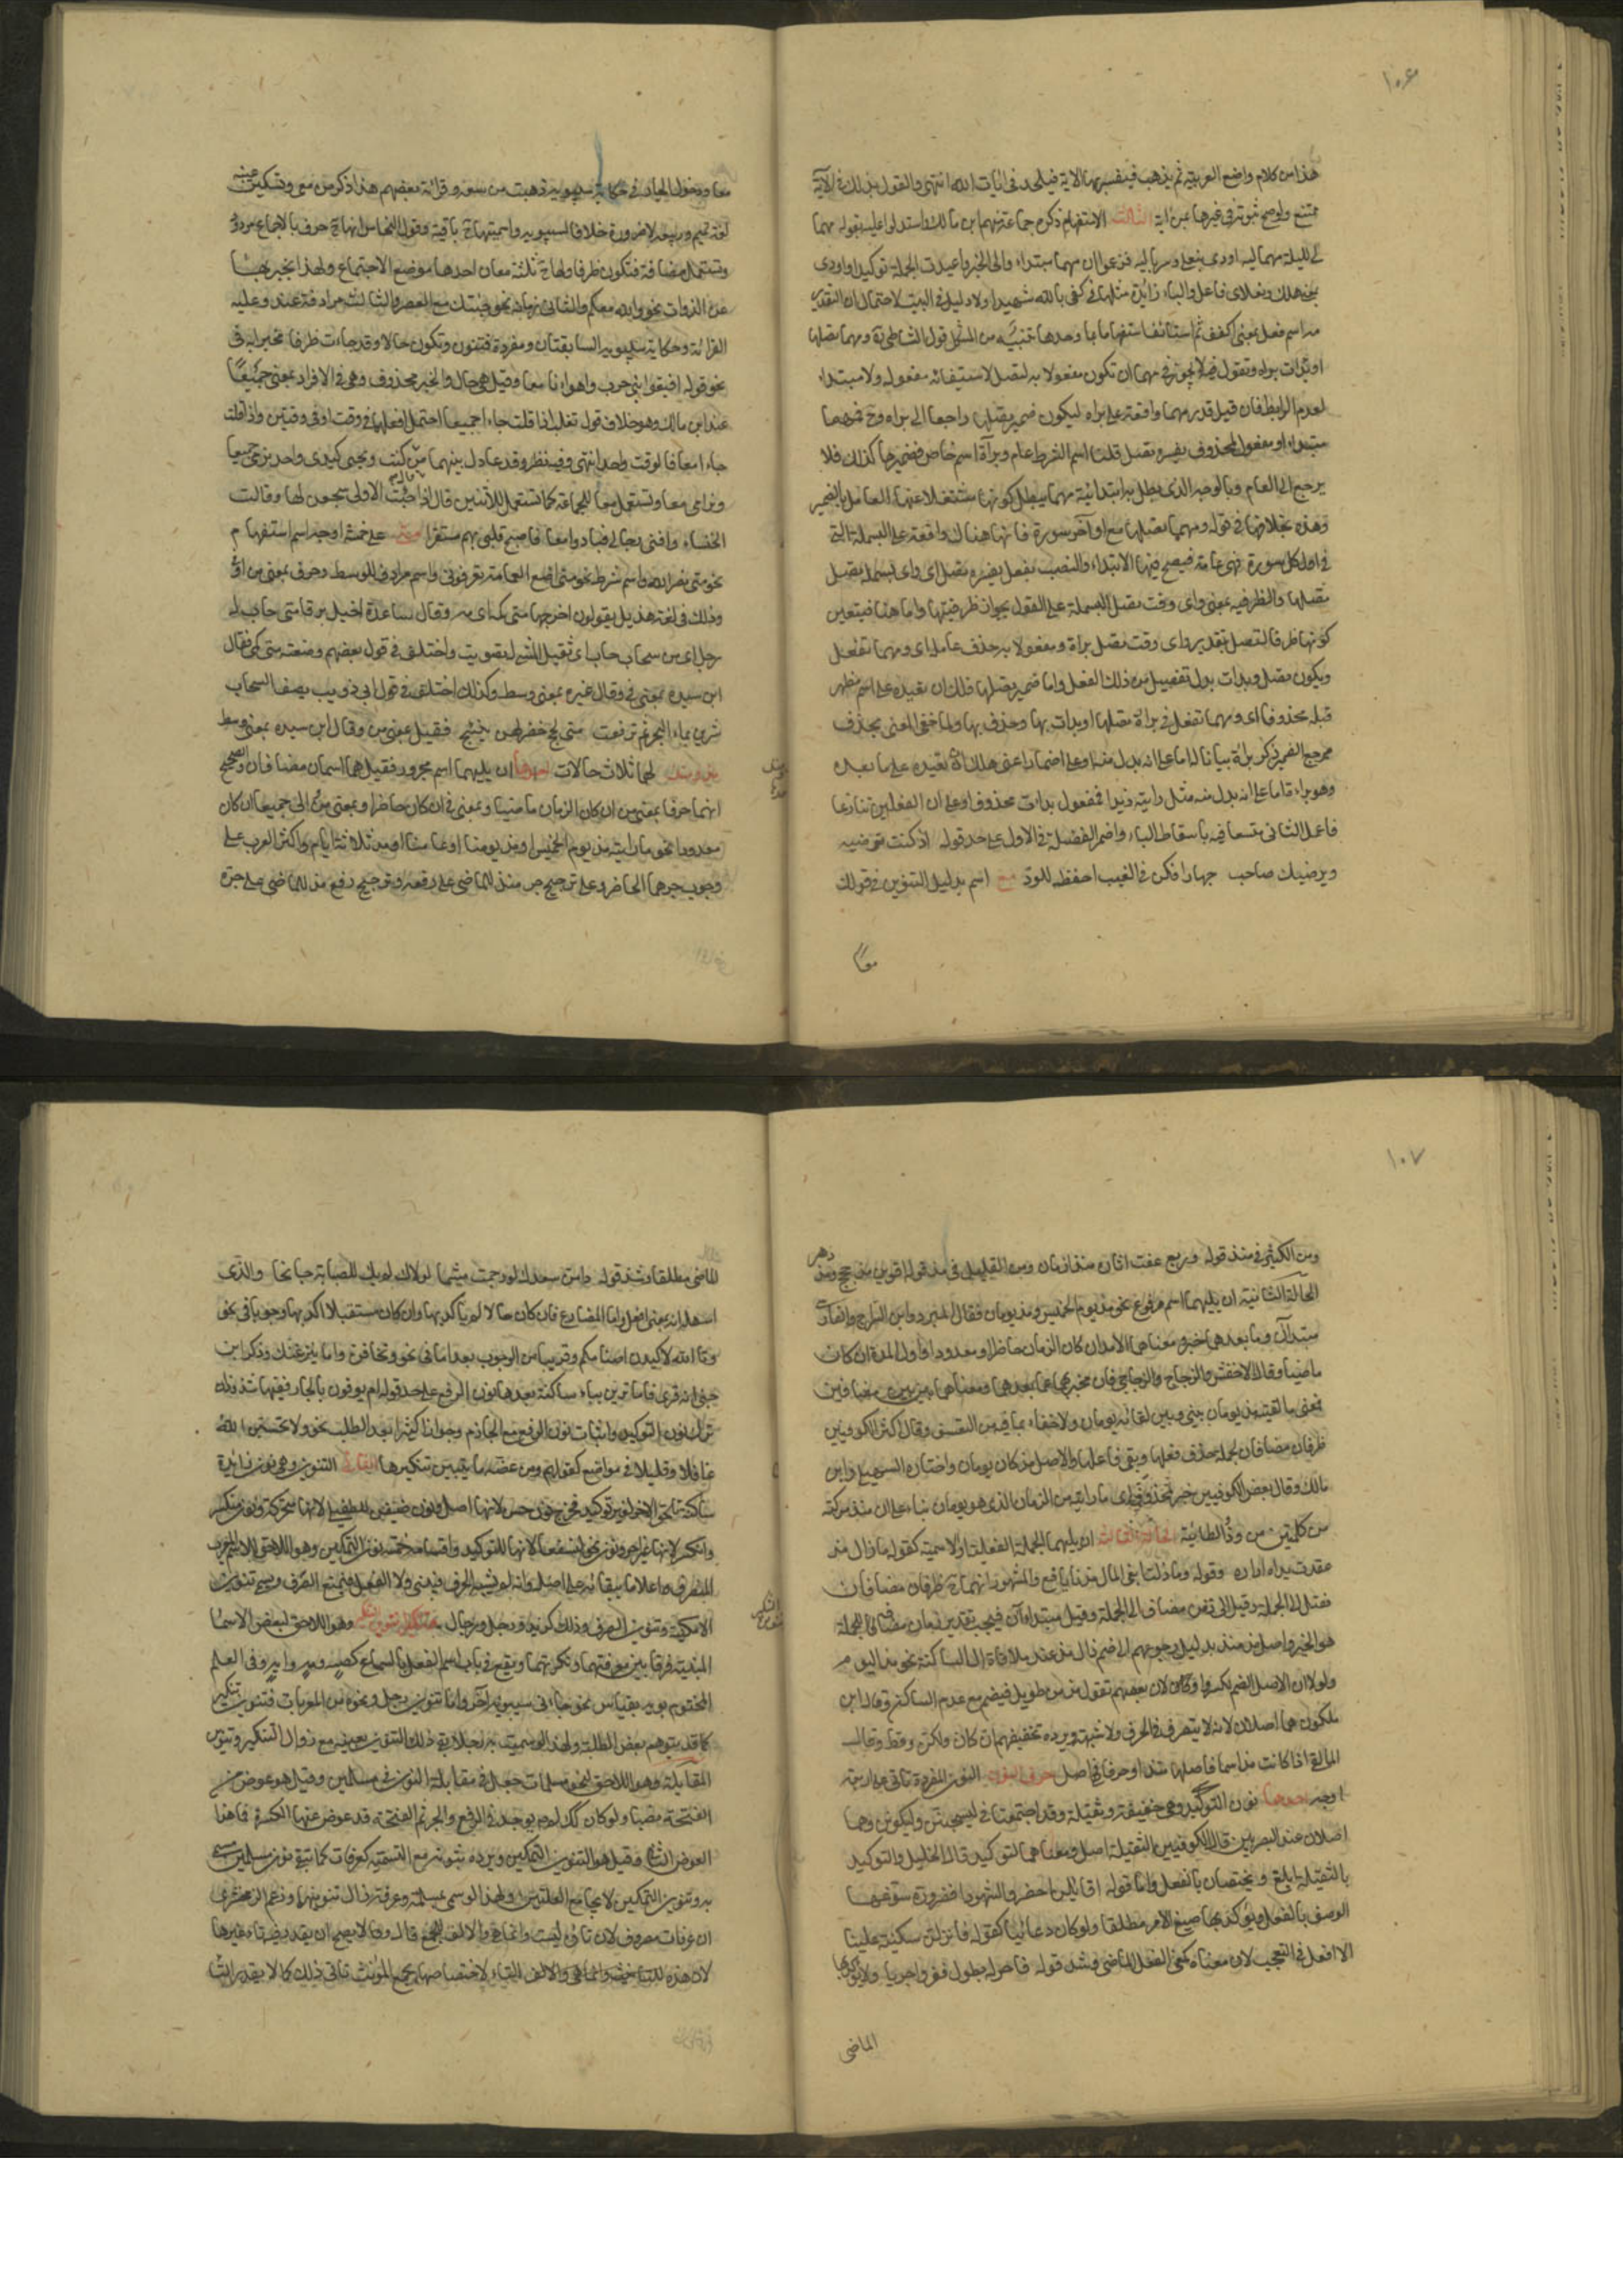 ١٠٦
هذا من كلام واضع العربية ثم يذهب فيفسر مهما الآية فيلحد في آيات الله انتهى والقول بذلك في الآية
ممتنع ولو صح ثبوته في غيرها عن اية الثالث الاستفهام ذكره جماعة منهم ابن مالك واستدلوا عليه بقوله مهما
لي الليلة مهما ليه اودى بنعلي وسرباليه فزعموا ان مهما مبتداء ولي الخبر واعيدت الجملة توكيدا واودى
بمعنى هلك ونعلاي فاعل والباء زائدة مثلها في كفى بالله شهيدا ولا دليل في البيت لاحتمال ان التقدير
مه اسم فعل بمعنى اكفف ثم استانف استفهاما بما وحدها تنبيه من المشكل قول الشاطبي ومهما تصلها
او بدات براءة ونقول فيه لا يجوز في مهما ان تكون مفعولا به لتصل لاستيفائه مفعوله ولا مبتداء
لعدم الرابط فان قيل قدر مهما واقعة على براءة ليكون ضمير تصلها راجعا الى براءة وح فمهما
مبتداء او مفعول لمحذوف يفسره تصل قلت اسم الشرط عام وبراءة اسم خاص فضميرها كذلك فلا
يرجع الى العام وبالوجه الذي بطل به ابتدائية مهما يبطل كونها مشتغلا عنها العامل بالضمير
وهذه بخلافها في قوله ومهما تصلها مع اواخر سورة فانها هناك واقعة على البسملة التي
في اول كل سورة فهي عامة فيصح فيها الابتداء والنصب بفعل يفسره تصل اي واي بسملة تصل
تصلها والظرفية بمعنى واي وقت تصل البسملة على القول بجواز ظرفيتها واما هنا فيتعين
كونها ظرفا لتصل بتقدير واي وقت تصل براءة او مفعولا به حذف عامله اي ومهما تفعل
ويكون تصل وبدات بدل تفصيل من ذلك الفعل واما ضمير تصلها فلك ان تعيده على اسم مظهر
قبله محذوفا اي ومهما تفعل في براءة تصلها او بدات بها وحذف بها ولما خفي المعنى بحذف
مرجع الضمير ذكر براءة بيانا له اما على انه بدل منه او على اضمار اعني ولك ان تعيده على ما بعده
وهو براءة اما على انه بدل منه مثل رايته زيدا فمفعول بدات محذوف او على ان الفعلين تنازعا
فاعمل الثاني متسعا فيه باسقاط الباء واضمر الفضلة في الاول على حد قوله اذ كنت ترضيه
ويرضيك صاحب جهارا فكن في الغيب احفظ للود مع اسم بدليل التنوين في قولك
معا
معا ودخول الجار في حكاية سيبويه ذهبت من معه وقراءة بعضهم هذا ذكر من معي وتسكين عينه
لغة تميم وربيعة لا ضرورة خلافا لسيبويه واسميتها ح باقية وقول النحاس انها ح حرف بالاجماع مردود
وتستعمل مضافة فتكون ظرفا ولها ح ثلثة معان احدها موضع الاجتماع ولهذا يخبر بها
عن الذوات نحو والله معكم والثاني زمانه نحو جئتك مع العصر والثالث مرادفة عند وعليه
القراءة وحكاية سيبويه السابقتان ومفردة فتنون وتكون حالا وقد جاءت ظرفا مخبرا به في
نحو قوله افيقوا بني حرب واهواءنا معا وقيل هي حال والخبر محذوف وهي في الافراد بمعنى جميعا
عند ابن مالك وهو خلاف قول ثعلب اذا قلت جاءا جميعا احتمل ان فعلهما في وقت او في وقتين واذا قلت
جاءا معا فالوقت واحد انتهى وفيه نظر وقد عادل بينهما من قال كنت ويحيى كيدي واحد نرمي جميعا
ونرامى معا وتستعمل معا للجماعة كما تستعمل للاثنين قال اذا حنت الاولى سجعن لها وقالت
الخنساء وافنى رجالي فبادوا معا فاصبح قلبي بهم مستفزا متى على خمسة اوجه اسم استفهام
نحو متى نصر الله واسم شرط نحو متى اضع العمامة تعرفوني واسم مرادف للوسط وحرف بمعنى من او في
وذلك في لغة هذيل يقولون اخرجها متى كمه اي منه وقال ساعدة اخيل برقا متى حاب له
زجل اي من سحاب حاب اي ثقيل المشي له تصويت واختلف في قول بعضهم وضعته متى كمي فقال
ابن سيده بمعنى في وقال غيره بمعنى وسط وكذلك اختلف في قول ابي ذويب يصف السحاب
شربن بماء البحر ثم ترفعت متى لجج خضر لهن نئيج فقيل بمعنى من وقال ابن سيده بمعنى وسط
منذ ومذ لهما ثلاث حالات احدها ان يليهما اسم مجرور فقيل هما اسمان مضافان والصحيح
انهما حرفا جر بمعنى من ان كان الزمان ماضيا وبمعنى في ان كان حاضرا وبمعنى من والى جميعا ان كان
معدودا نحو ما رايته مذ يوم الخميس او مذ يومنا او عامنا او مذ ثلاثة ايام واكثر العرب على
وجوب جرهما الحاضر وعلى ترجيح جر منذ للماضي على رفعه وترجيح رفع مذ للماضي على جره
١٠٧
ومن الكثير في منذ قوله وربع عفت اثاره منذ ازمان ومن القليل في مذ قوله اقوين مذ حجج ومذ دهر
الحالة الثانية ان يليهما اسم مرفوع نحو مذ يوم الخميس ومذ يومان فقال المبرد وابن السراج والفارسي
مبتدآن وما بعدهما خبر ومعناهما الامد ان كان الزمان حاضرا او معدودا واول المدة ان كان
ماضيا وقال الاخفش والزجاج والزجاجي ظرفان مخبر بهما عما بعدهما ومعناهما بين وبين مضافين
فمعنى ما لقيته مذ يومان بيني وبين لقائه يومان ولا خفاء بما فيه من التعسف وقال اكثر الكوفيين
ظرفان مضافان لجملة حذف فعلها وبقي فاعلها والاصل مذ كان يومان واختاره السهيلي وابن
مالك وقال بعض الكوفيين خبر لمحذوف اي ما رايته من الزمان الذي هو يومان بناء على ان منذ مركبة
من كلمتين من وذو الطائية الحالة الثالثة ان يليهما الجملة الفعلية او الاسمية كقوله ما زال مذ
عقدت يداه ازاره وقوله وما زلت ابغي المال مذ انا يافع والمشهور انهما ح ظرفان مضافان
فقيل الى الجملة وقيل الى زمن مضاف الى الجملة وقيل مبتدآن فيجب تقدير زمان مضاف الى الجملة
هو الخبر واصل مذ منذ بدليل رجوعهم الى ضم ذال مذ عند ملاقاة الساكن نحو مذ اليوم
ولولا ان الاصل الضم لكسروا ولان بعضهم يقول مذ زمن طويل فيضم مع عدم الساكن وقال ابن
ملكون هما اصلان لانه لا يتصرف في الحرف ولا شبهه ويرده تخفيفهم ان وكان ولكن ورب وقط وقال
المالقي اذا كانت مذ اسما فاصلها منذ او حرفا فهي اصل حرف النون النون المفردة تاتي على اربعة
اوجه احدها نون التوكيد وهي خفيفة وثقيلة وقد اجتمعتا في ليسجنن وليكونن وهما
اصلان عند البصريين وقال الكوفيين الثقيلة اصل ومعناهما التوكيد قال الخليل والتوكيد
بالثقيلة ابلغ ويختصان بالفعل واما قوله اقائلن احضروا الشهودا فضرورة سوغها شبه
الوصف بالفعل ويؤكد بهما صيغ الامر مطلقا ولو كان دعائيا كقوله فانزلن سكينة علينا
الا افعل في التعجب لان معناه كمعنى الفعل الماضي وشذ قوله فاحر به بطول فقر واحريا ولا يؤكد بهما
الماضي
الماضي مطلقا وشذ قوله دامن سعدك لو رحمت متيما لولاك لم يك للصبابة جانحا والذي
سهله انه بمعنى افعل واما المضارع فان كان حالا لم يؤكد بهما وان كان مستقبلا اكد بهما وجوبا في نحو
وتالله لاكيدن اصنامكم وقريبا من الوجوب بعد اما في نحو واما تخافن واما ينزغنك وذكر ابن
جني انه قرئ فاما ترين بياء ساكنة بعدها نون الرفع على حد قوله لم يوفون بالجار ففيها شذوذان
ترك نون التوكيد واثبات نون الرفع مع الجازم وجوازا كثيرا بعد الطلب نحو ولا تحسبن الله
غافلا وقليلا في مواضع كقولهم ومن عضة ما ينبتن شكيرها الثاني التنوين وهي نون زائدة
ساكنة تلحق الاخر لغير توكيد فخرج نون حسن لانها اصل ونون ضيفن للطفيلي لانها متحركة ونون منكسر
وانكسر لانها غير اخر ونون نحو لنسفعا لانها للتوكيد واقسامه خمسة تنوين التمكين وهو اللاحق للاسم المعرب
المنصرف اعلاما ببقائه على اصله وانه لم يشبه الحرف فيبنى ولا الفعل فيمنع الصرف ويسمى تنوين
الامكنية وتنوين الصرف وذلك كزيد ورجل ورجال وتنوين التنكير وهو اللاحق لبعض الاسماء
المبنية فرقا بين معرفتها ونكرتها ويقع في باب اسم الفعل بالسماع كصه ومه وايه وفي العلم
المختوم بويه بقياس نحو جاءني سيبويه وسيبويه آخر واما تنوين رجل ونحوه من المعربات فتنوين تمكين لا تنكير
كما قد يتوهم بعض الطلبة ولهذا لو سميت به رجلا بقي ذلك التنوين بعينه مع زوال التنكير وتنوين
المقابلة وهو اللاحق لنحو مسلمات جعل في مقابلة النون في مسلمين وقيل هو عوض عن
الفتحة نصبا ولو كان كذلك لم يوجد في الرفع والجر ثم الفتحة قد عوض عنها الكسرة فما هذا
العوض الثاني وقيل هو تنوين التمكين ويرده ثبوته مع التسمية كعرفات كما تبقى نون مسلمين مسمى
به وتنوين التمكين لا يجامع العلتين ولهذا لو سمي بمسلمة وعرفة زال تنوينهما وزعم الزمخشري
ان عرفات مصروف لان تاءه ليست للتانيث وانما هي والالف للجمع قال ولا يصح ان يقدر فيه تاء غيرها
لان هذه التاء لاختصاصها بجمع المؤنث تابى ذلك كما لا يقدر التاء